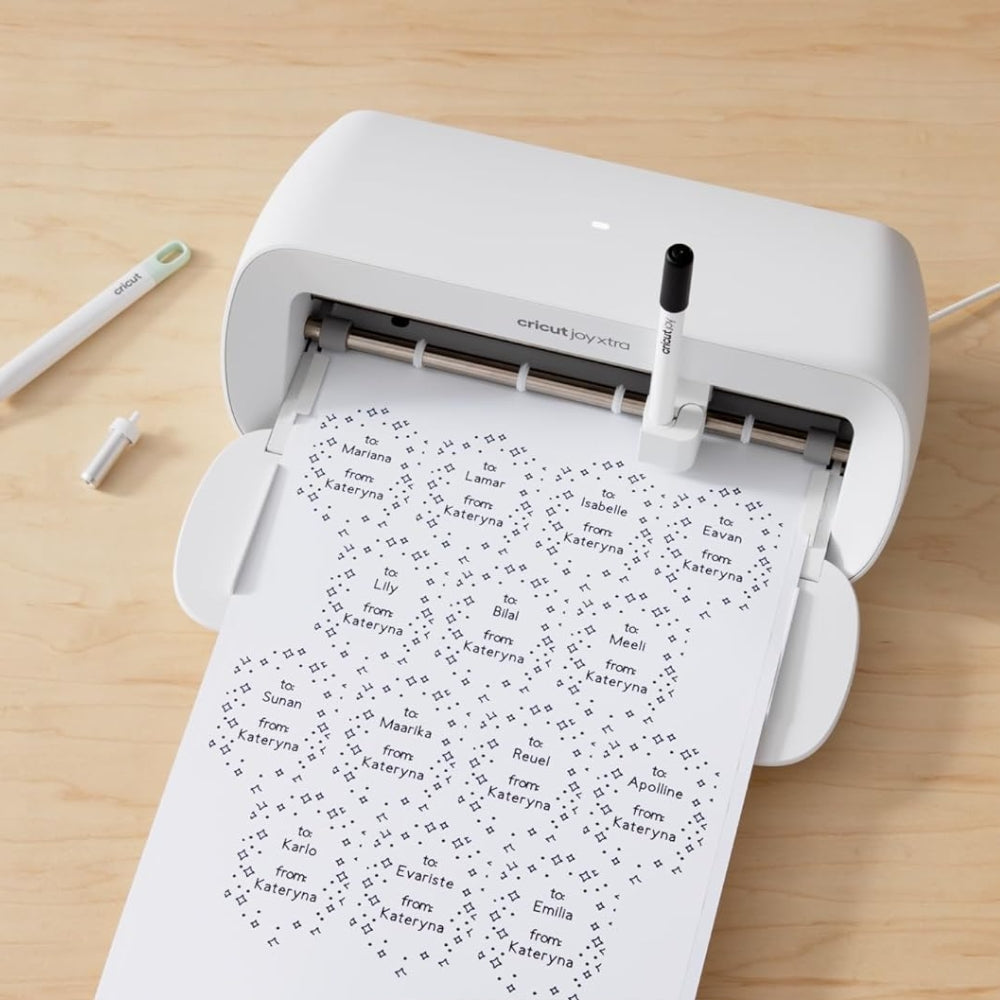 cricut
cricut joy xtra
cricut joy
to:
Mariana
from:
Kateryna
to:
Lamar
from:
Kateryna
to:
Isabelle
from:
Kateryna
to:
Eavan
from:
Kateryna
to:
Lily
from:
Kateryna
to:
Bilal
from:
Kateryna
to:
Meeli
from:
Kateryna
to:
Sunan
from:
Kateryna
to:
Maarika
from:
Kateryna
to:
Reuel
from:
Kateryna
to:
Apolline
from:
Kateryna
to:
Karlo
from:
Kateryna
to:
Evariste
from:
Kateryna
to:
Emilia
from:
Kateryna